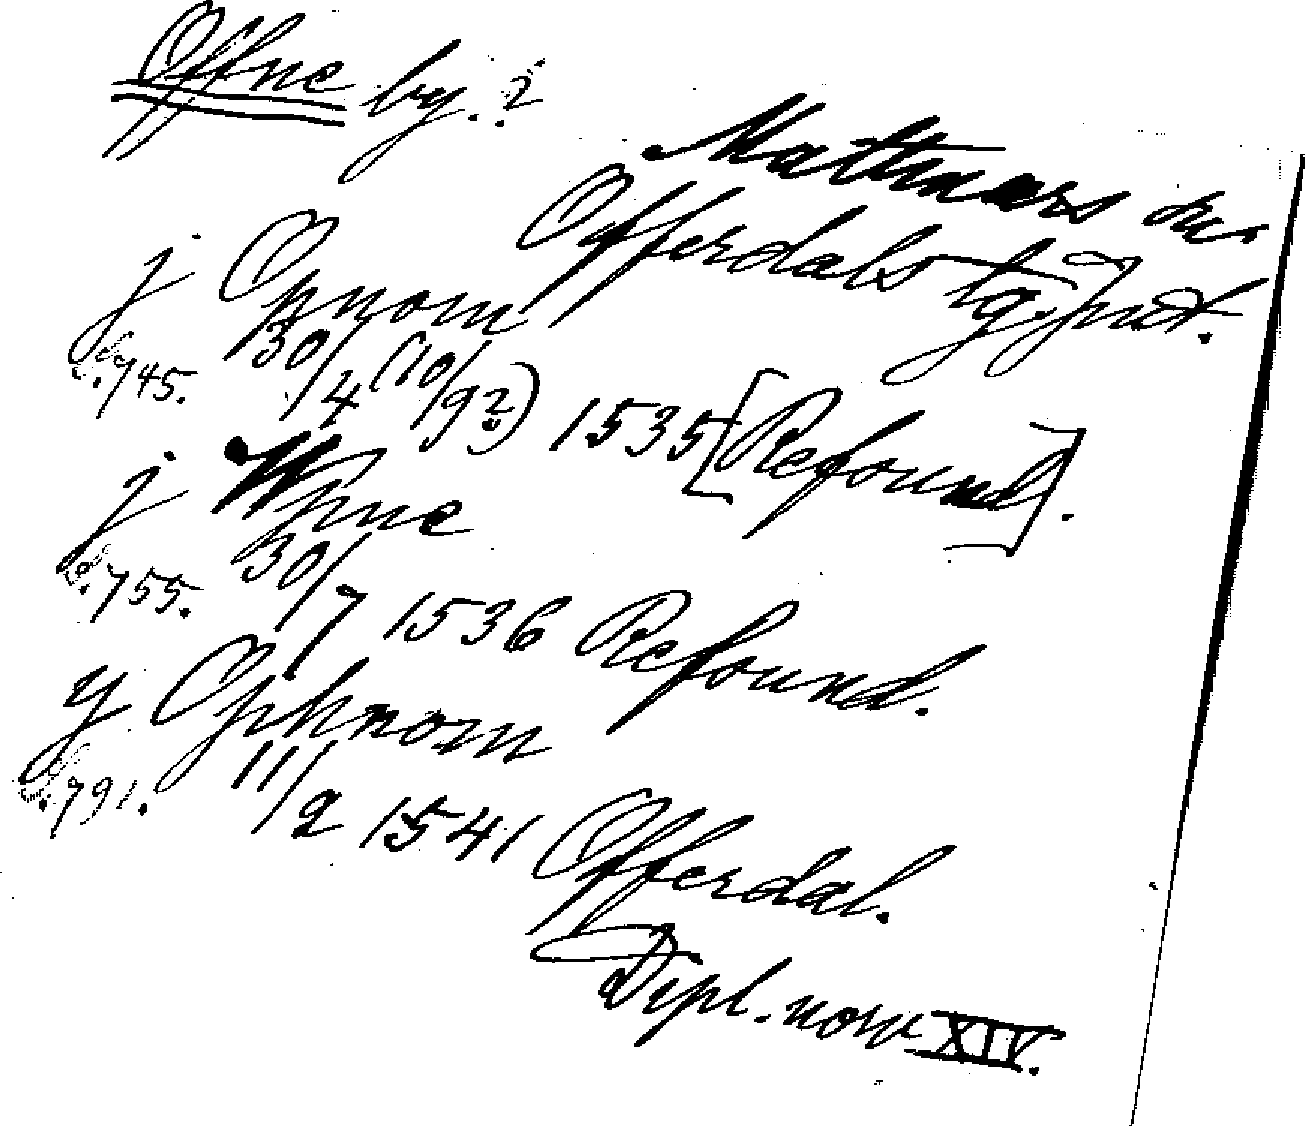 Offne by. ?
Mattmars sn.
Offerdals tg, Jmt.
j Opnom
30/4 (10/92) 1535 [Refsund].
s. 745.
j Vpne
30/7 1536 Refsund.
s. 755.
y Ophnom
11/2 1541 Offerdal.
s. 791.
Dipl. norv XIV.